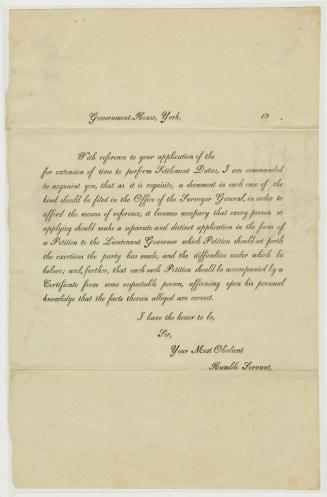 Government House, York, 18 .
With reference to your application of the
for extension of time to perform Settlement Duties, I am commanded
to acquaint you, that as it is requisite, a document in each case of the
kind should be filed in the Office of the Surveyor General, in order to
afford the means of reference, it becomes necessary that every person so
applying should make a separate and distinct application in the form of
a Petition to the Lieutenant Governor which Petition should set forth
the exertions the party has made, and the difficulties under which he
labors; and, further, that each such Petition should be accompanied by a
Certificate from some respectable person, affirming upon his personal
knowledge that the facts therein alleged are correct.
I have the honor to be,
Sir,
Your Most Obedient
Humble Servant.